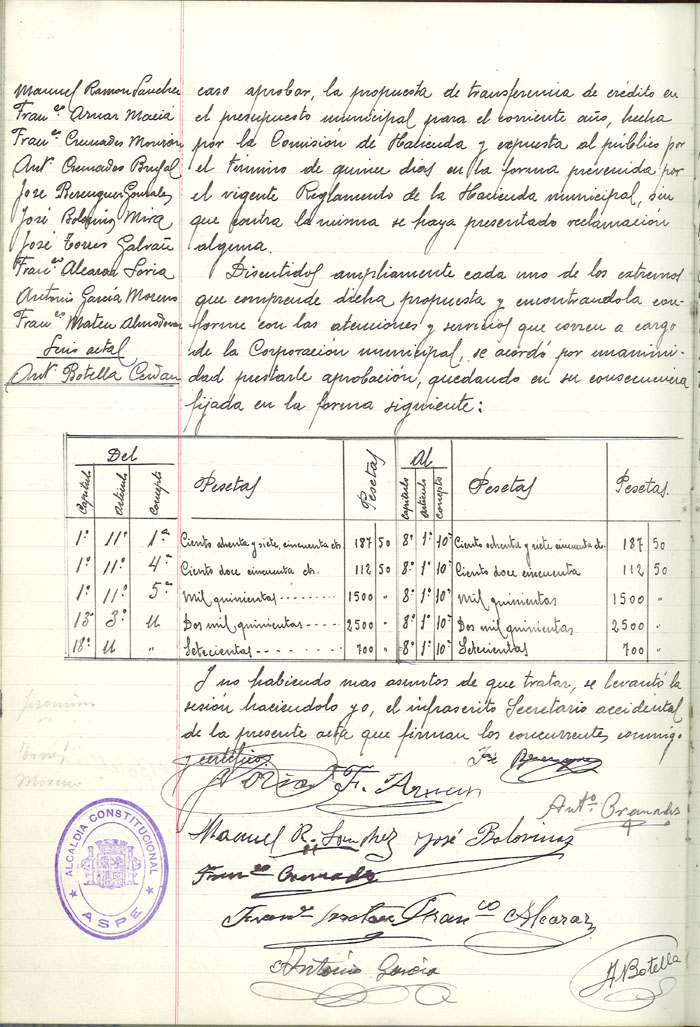 Manuel Ramon Sanchez
Fran.co Arnar Maciá
Fran.co Cremades
Ant.o Cremades Brufal
Jose Berenguer Gonzales
José Bolorinos Mira
José Torres Galvañ
Fran.co Alcaraz Soria
Antonio García Moreno
Fran.co Mateu Almodovar
Srio actal
Ant.o Botella Cerdan
caso aprobar, la propuesta de transferencia de crédito en
el presupuesto municipal para el corriente año, hecha
por la Comisión de Hacienda y expuesta al público por
el término de quince dias en la forma prevenida por
el vigente Reglamento de la Hacienda municipal, sin
que contra la misma se haya presentado reclamación
alguna.
Discutidos ampliamente cada uno de los extremos
que comprende dicha propuesta y encontrandola con-
forme con las atenciones y servicios que corren a cargo
de la Corporación municipal, se acordó por unanimi-
dad prestarle aprobación, quedando en su consecuencia
fijada en la forma siguiente:
Del Al
Capítulo Artículo Concepto Pesetas Pesetas Capítulo Artículo Concepto Pesetas Pesetas.
1º 11º 1º Ciento ochenta y siete, cincuenta cts. 187 50 8º 1º 10º Ciento ochenta y siete cincuenta cts. 187 50
1º 11º 4º Ciento doce cincuenta cts. 112 50 8º 1º 10º Ciento doce cincuenta 112 50
1º 11º 5º Mil quinientas 1500 " 8º 1º 10º Mil quinientas 1500 "
13º 3º u Dos mil quinientas 2500 " 8º 1º 10º Dos mil quinientas 2500 "
18º u " Setecientas 700 " 8º 1º 10º Setecientas 700 "
Y no habiendo mas asuntos de que tratar, se levantó la
sesión haciendolo yo, el infrascrito Secretario accidental
de la presente acta que firman los concurrentes conmigo
y certifico
José Berenguer
F. Arnar
Ant.o Cremades
Manuel R. Sanchez José Bolorinos
Fran.co Cremades
Fran.co Alcaraz
Antonio García
A Botella
ALCALDIA CONSTITUCIONAL
ASPE